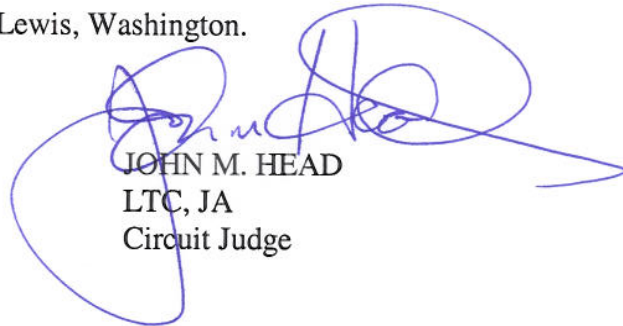 Lewis, Washington.
John M Head
JOHN M. HEAD
LTC, JA
Circuit Judge